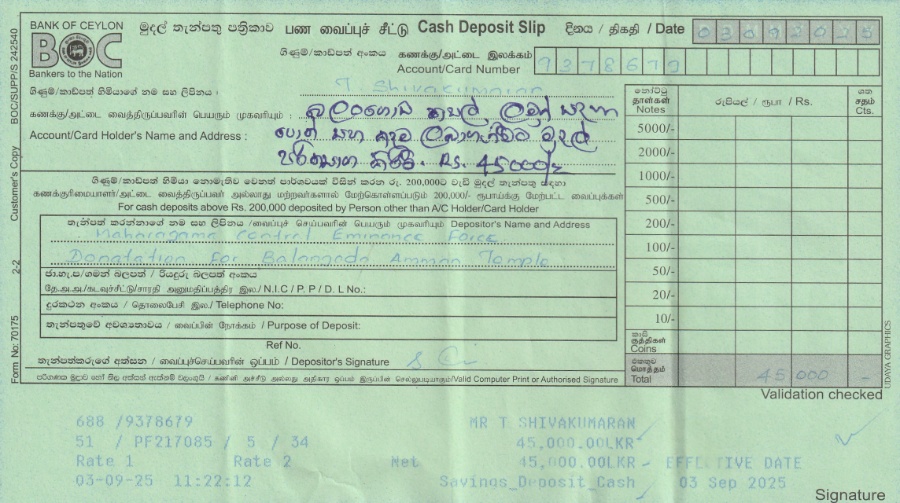 BANK OF CEYLON
BOC
Bankers to the Nation
මුදල් තැන්පතු පත්‍රිකාව பண வைப்புச் சீட்டு Cash Deposit Slip
දිනය / திகதி / Date 03092025
ගිණුම්/කාඩ්පත් අංකය கணக்கு/அட்டை இலக்கம்
Account/Card Number 9378679
ගිණුම්/කාඩ්පත් හිමියාගේ නම සහ ලිපිනය :
T Shivakumaran
கணக்கு/அட்டை வைத்திருப்பவரின் பெயரும் முகவரியும் :
Account/Card Holder's Name and Address :
බලංගොඩ
පොත් සහ ලබාගැනීමට මුදල්
පරිත්‍යාග කිරීම. Rs. 45000/=
ගිණුම්/කාඩ්පත් හිමියා නොමැතිව වෙනත් පාර්ශවයක් විසින් කරන රු. 200,000ට වැඩි මුදල් තැන්පතු සඳහා
கணக்குரிமையாளர்/அட்டை வைத்திருப்பவர் அல்லாது மற்றவர்களால் மேற்கொள்ளப்படும் 200,000/- ரூபாய்க்கு மேற்பட்ட வைப்புக்கள்
For cash deposits above Rs. 200,000 deposited by Person other than A/C Holder/Card Holder
තැන්පත් කරන්නාගේ නම සහ ලිපිනය /வைப்புச் செய்பவரின் பெயரும் முகவரியும் Depositor's Name and Address
Maharagama Central Eminance Force
Donatation For Balangoda Amman Temple
ජා.හැ.ප/ගමන් බලපත්‍ර / රියදුරු බලපත්‍ර අංකය
தே.அ.அ/கடவுச்சீட்டு/சாரதி அனுமதிப்பத்திர இல./ N.I.C / P. P / D. L No.:
දුරකථන අංකය / தொலைபேசி இல./ Telephone No:
තැන්පතුවේ අවශ්‍යතාවය / வைப்பின் நோக்கம் / Purpose of Deposit:
Ref No.
තැන්පත්කරුගේ අත්සන / வைப்புச்செய்பவரின் ஒப்பம் / Depositor's Signature
/Valid Computer Print or Authorised Signature
නෝට්ටු
தாள்கள்
Notes
රුපියල් / ரூபா / Rs.
ශත
சதம்
Cts.
5000/-
2000/-
1000/-
500/-
200/-
100/-
50/-
20/-
10/-
කාසි
குத்திகள்
Coins
එකතුව
மொத்தம்
Total 45000 -
Validation checked
688 /9378679 MR T SHIVAKUMARAN
51 / PF217085 / 5 / 34 45,000.00LKR
Rate 1 Rate 2 Net 45,000.00LKR EFFECTIVE DATE
03-09-25 11:22:12 Savings_Deposit_Cash 03 Sep 2025
Signature
BOC/SUPP/S 242540
Customer's Copy
2-2
Form No: 70175
UDAYA GRAPHICS